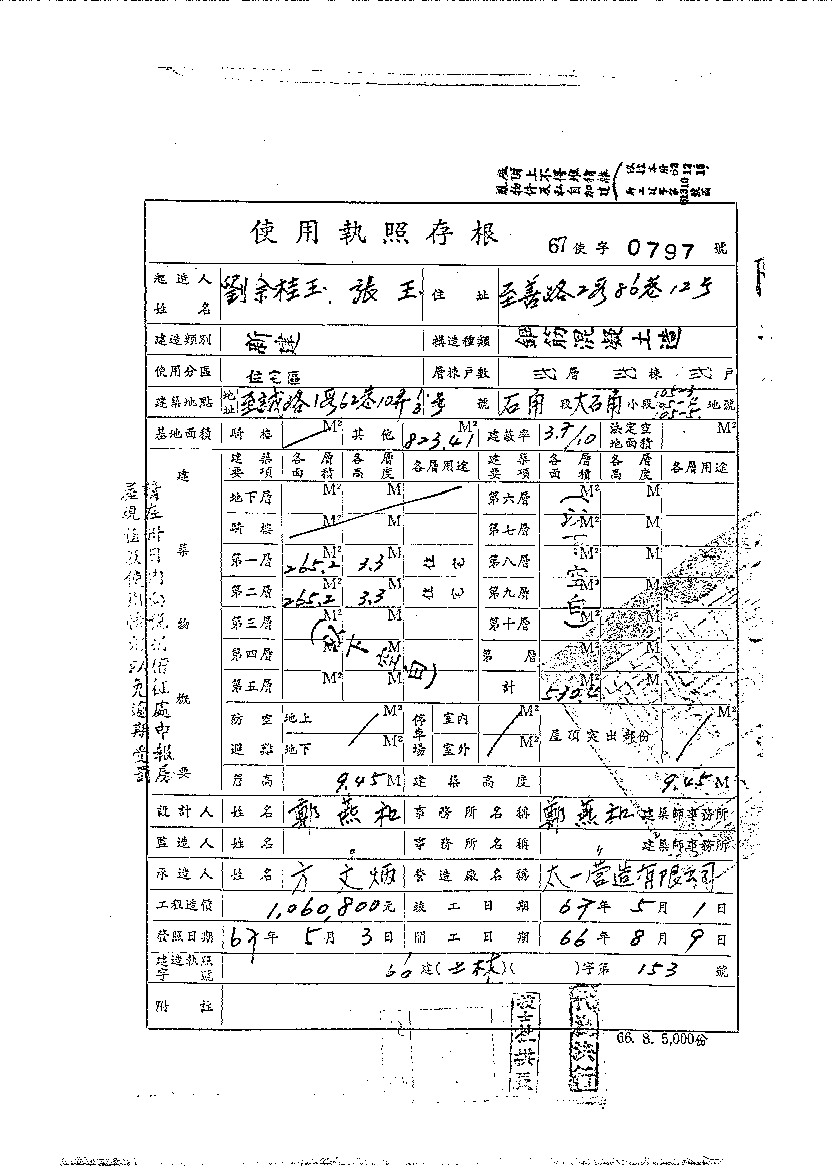 使用執照存根
67使字 0797 號
起造人姓名 劉余桂玉、張玉 住址 至善路2段86巷12号
建造類別 新建 構造種類 鋼筋混凝土造
使用分區 住宅區 層棟戶數 弍層 弍棟 弍戶
建築地點 地址 至誠路1段62巷10弄 號 石角段大石角小段 地號
基地面積 騎樓 M² 其他 823.41 M² 建蔽率 3.7/10 法定空地面積 M²
建築物概要
建築要項 各層面積 各層高度 各層用途 建築要項 各層面積 各層高度 各層用途
地下層 M² M 第六層 M² M
騎樓 M² M 第七層 M² M
第一層 265.2 M² 3.3 M 住宅 第八層 M² M
第二層 265.2 M² 3.3 M 住宅 第九層 M² M
第三層 M² M 第十層 M² M
第四層 M² M 第 層 M² M
第五層 M² M 計 530.4 M² M
(以下空白)
(以下空白)
防空避難 地上 M² 地下 M² 停車場 室內 M² 室外 M² 屋頂突出部份 M²
簷高 9.45 M 建築高度 9.45 M
設計人 姓名 鄭燕和 事務所名稱 鄭燕和 建築師事務所
監造人 姓名 〃 事務所名稱 〃 建築師事務所
承造人 姓名 方文炳 營造廠名稱 太一營造有限公司
工程造價 1,060,800元 竣工日期 67年5月1日
發照日期 67年5月3日 開工日期 66年8月9日
建造執照字號 66建(士林)( )字第153號
附註
代為決行
66. 8. 5,000份